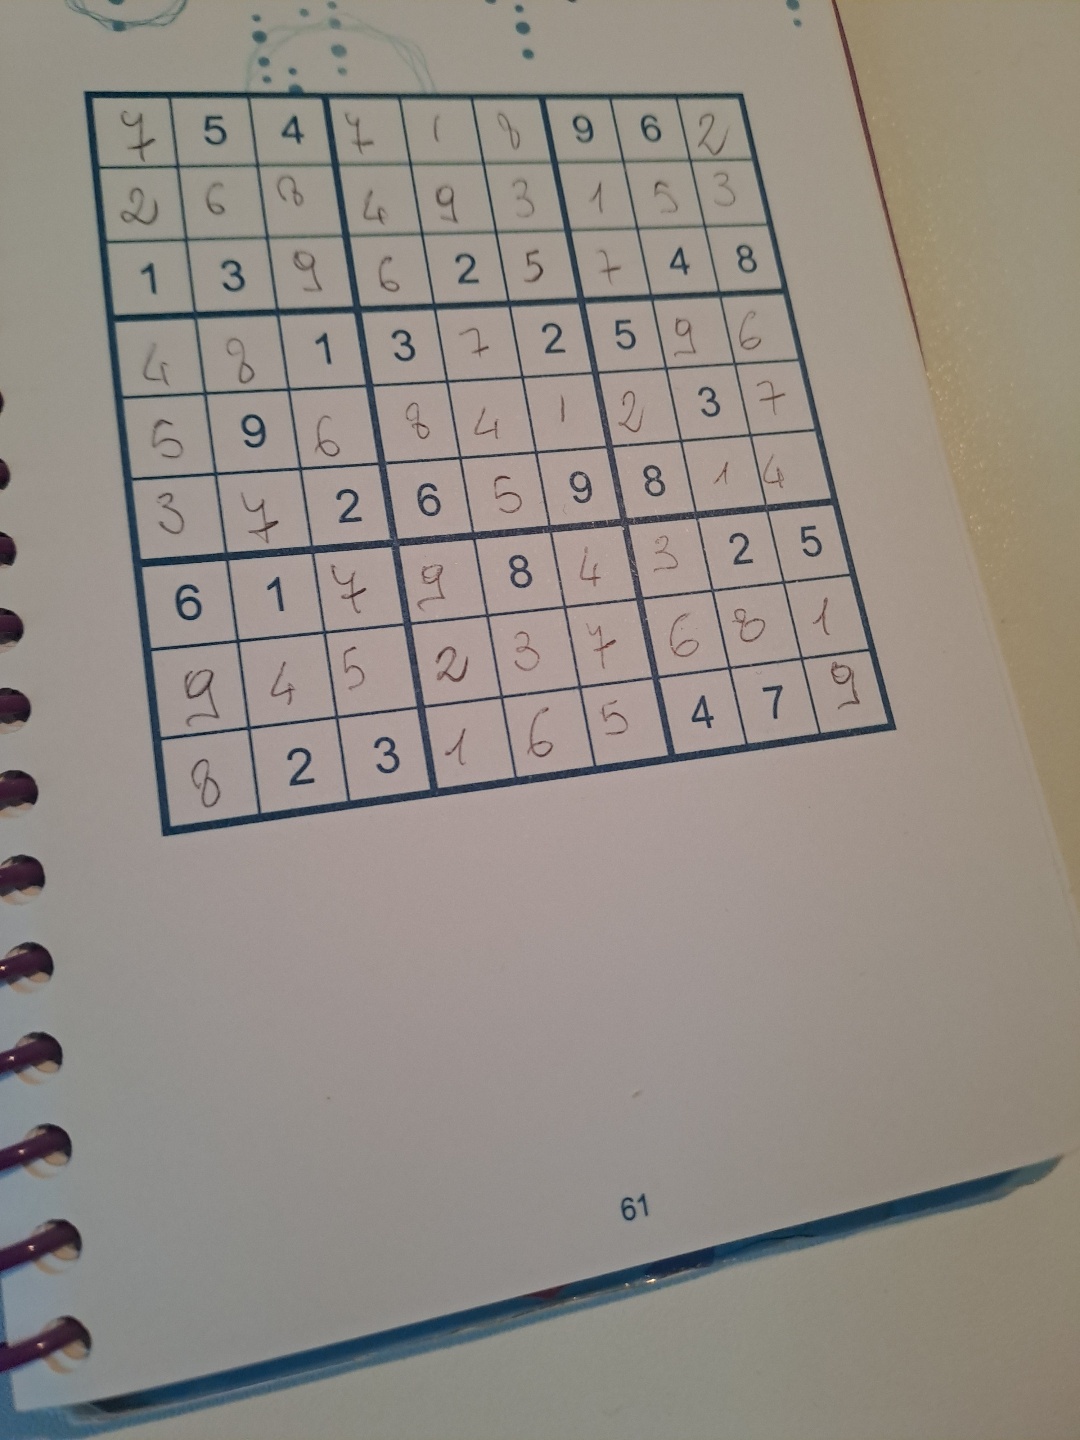 7 5 4 7 1 8 9 6 2
2 6 8 4 9 3 1 5 3
1 3 9 6 2 5 7 4 8
4 8 1 3 7 2 5 9 6
5 9 6 8 4 1 2 3 7
3 7 2 6 5 9 8 1 4
6 1 7 9 8 4 3 2 5
9 4 5 2 3 7 6 8 1
8 2 3 1 6 5 4 7 9
61